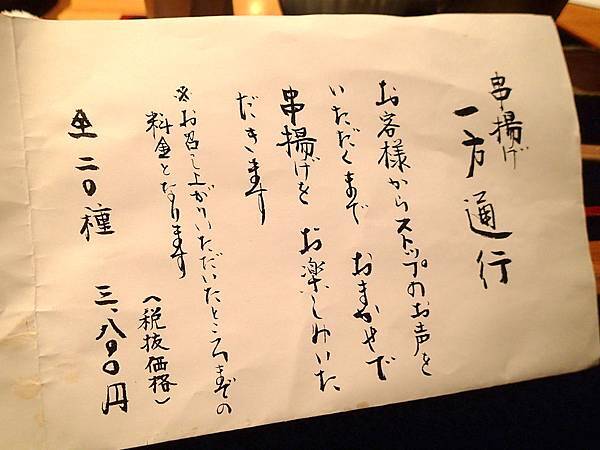 串揚げ
一方通行
お客様からストップのお声を
いただくまで おまかせで
串揚げを お楽しみいた
だきます
※お召し上がりいただいたところまでの
料金となります
全二〇種 三、八九〇円
(税抜価格)